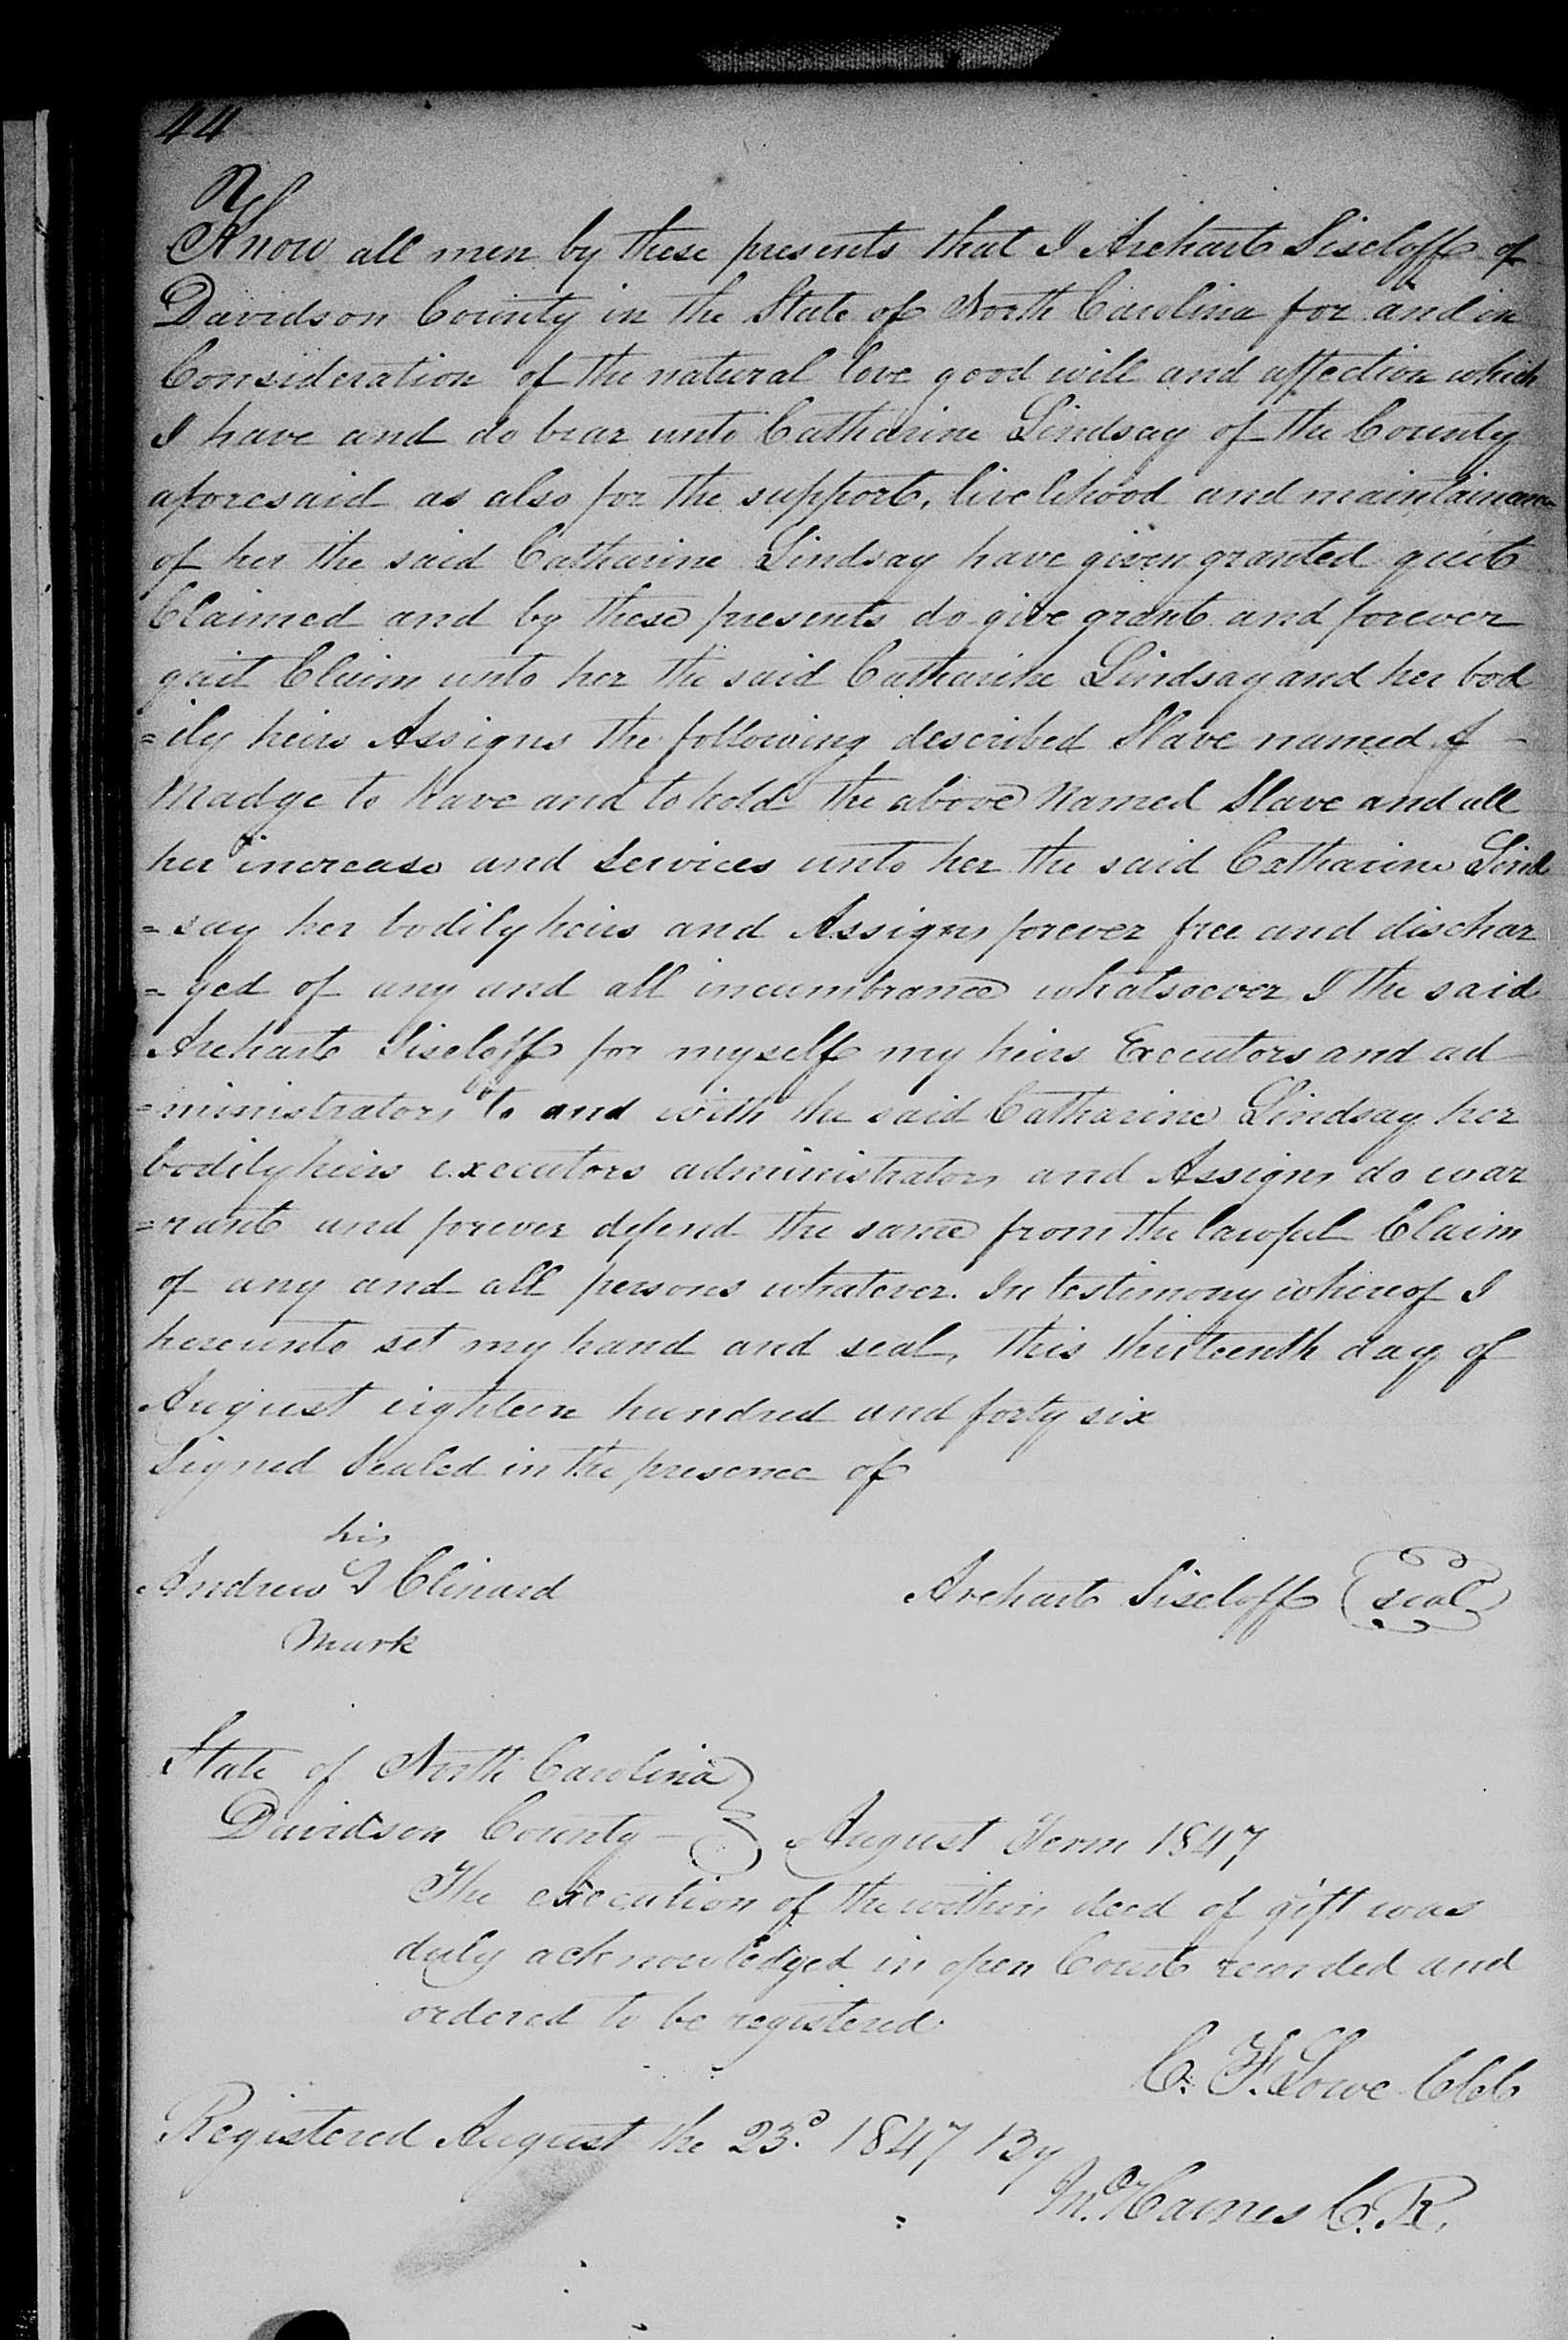 44
Know all men by these presents that I Arehart Siscloff of
Davidson County in the State of North Carolina for and in
Consideration of the natural love good will and affection which
I have and do bear unto Catharine Lindsay of the County
aforesaid as also for the support, livelihood and maintainance
of her the said Catharine Lindsay have given granted quit
Claimed and by these presents do give grant and forever
quit Claim unto her the said Catharine Lindsay and her bod
=ily heirs Assigns the following described Slave named
Madge to have and to hold the above Named Slave and all
her increase and services unto her the said Catharine Lind
=say her bodily heirs and Assigns forever free and dischar
=ged of any and all incumbrance whatsoever I the said
Arehart Siscloff for myself my heirs Executors and ad
=ministrators to and with the said Catharine Lindsay her
bodily heirs executors administrators and Assigns do war
=rant and forever defend the same from the lawful Claim
of any and all persons whatever. In testimony whereof I
hereunto set my hand and seal, this thirteenth day of
August eighteen hundred and forty six
Signed Sealed in the presence of
his
Andrew Clinard
mark
Arehart Siscloff (seal)
State of North Carolina
Davidson County August Term 1847
The execution of the within deed of gift was
duly acknowledged in open Court recorded and
ordered to be registered.
C. F. Lowe CCC
Registered August the 23d. 1847 By
M. Haines C. R.